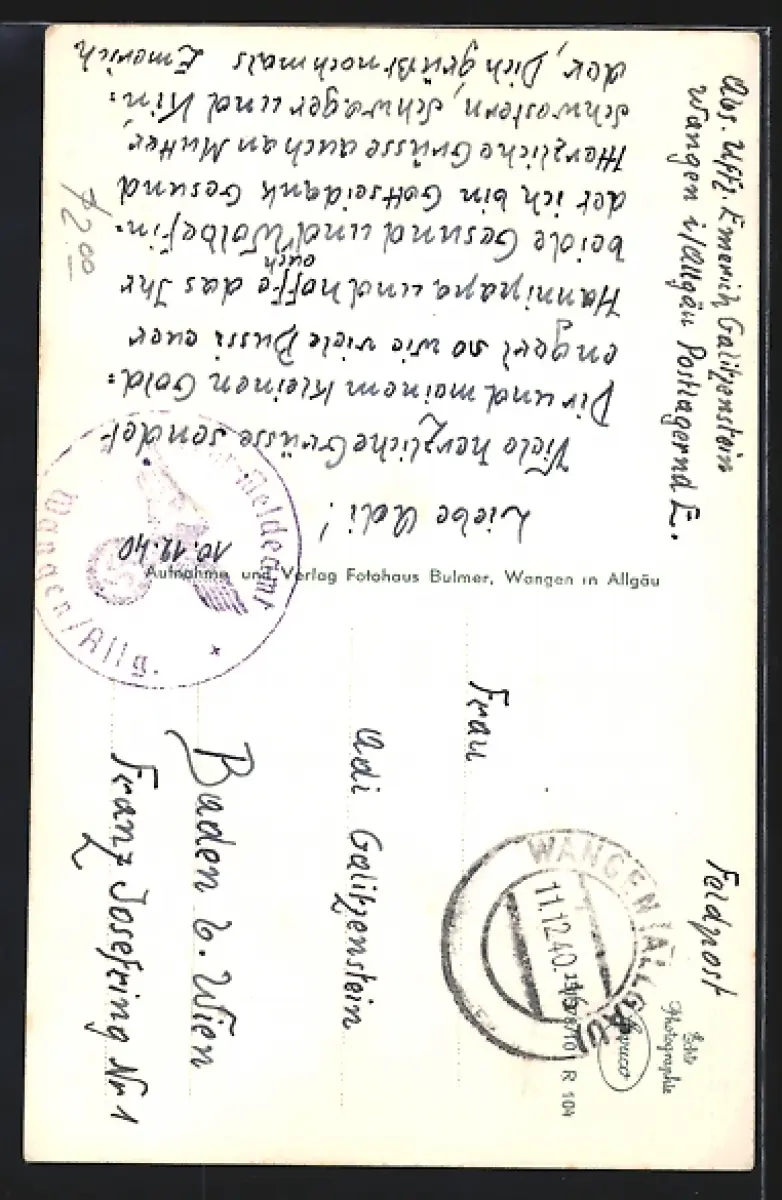 Abs. Uffz. Emerich Galitzenstein
Wangen i/Allgäu Postlagernd E.
10.12.40
Liebe Adi!
Viele herzliche Grüsse sendet
Dir und meinem kleinen Gold=
engerl so wie viele Bussi euer
Hannipapa und hoffe das Ihr
auch
beide Gesund und Wolbefin=
det ich bin Gottseidank Gesund
Herzliche Grüsse auch an Mutter
Schwestern, Schwager und Kin=
der, Dich grüßt nochmals Emerich
12.00
Meldeamt
Wangen/Allg.
Aufnahme und Verlag Fotohaus Bulmer, Wangen in Allgäu
Feldpost
WANGEN (ALLGÄU)
11.12.40
R 104
Echte
Photographie
Frau
Adi Galitzenstein
Baden b. Wien
Franz Josefring Nr 1